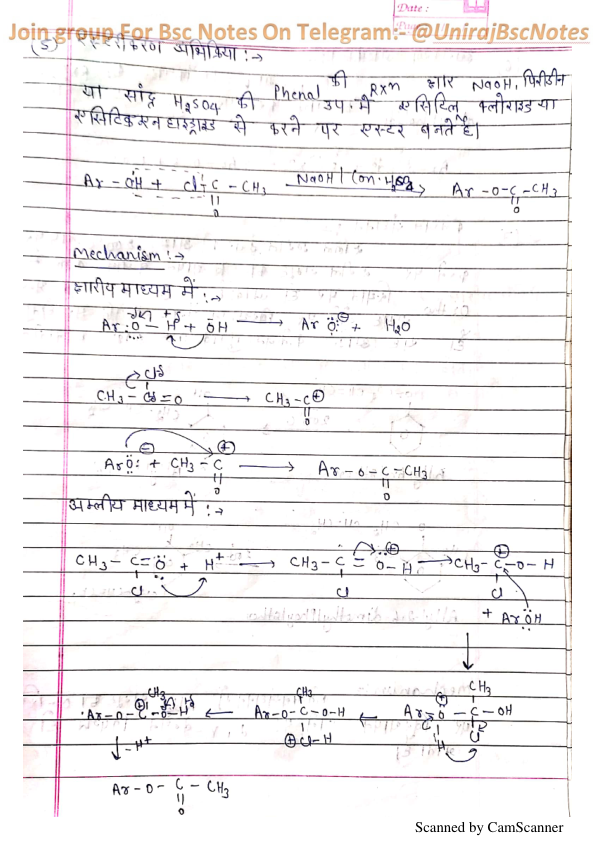 Date :
Page
Join group For Bsc Notes On Telegram:- @UnirajBscNotes
(5) एस्टरीकरण अभिक्रिया :→
Phenol की Rxn क्षार NaOH, पिरीडीन
या सांद्र H₂SO₄ की उप. में एसिटिल क्लोराइड या
एसिटिक एनहाइड्राइड से करने पर एस्टर बनते है।
Ar - OH + Cl - C - CH₃ NaOH | Con. H₂SO₄ → Ar - O - C - CH₃
|| ||
O O
Mechanism :→
क्षारीय माध्यम में :→
Ar - O - H + ŌH → Ar O⊖ + H₂O
Cl
CH₃ - C = O → CH₃ - C⊕
||
O
⊖ ⊕
Ar O: + CH₃ - C → Ar - O - C - CH₃
|| ||
O O
अम्लीय माध्यम में :→
CH₃ - C = O + H⁺ → CH₃ - C = O⊕ - H → CH₃ - C⊕ - O - H
Cl Cl Cl
+ Ar OH
CH₃ CH₃ CH₃
Ar - O - C⊕ - O - H ← Ar - O - C - O - H ← Ar - O⊕ - C - OH
⊕Cl - H H Cl
↓ - H⁺
Ar - O - C - CH₃
||
O
Scanned by CamScanner